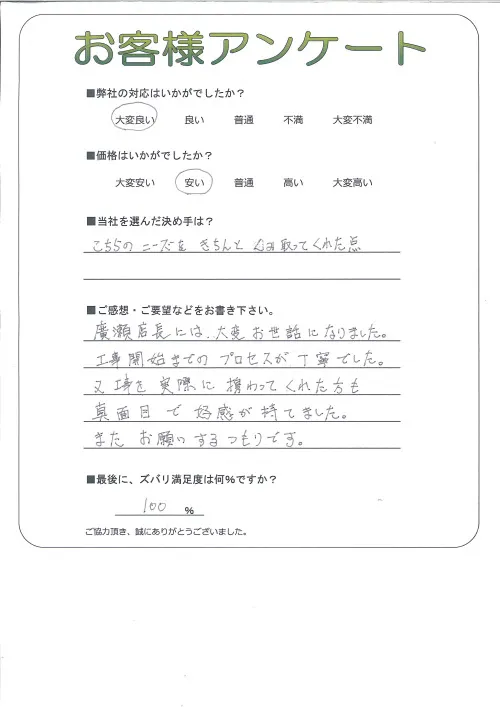 お客様アンケート
■弊社の対応はいかがでしたか？
大変良い 良い 普通 不満 大変不満
■価格はいかがでしたか？
大変安い 安い 普通 高い 大変高い
■当社を選んだ決め手は？
こちらのニーズをきちんとくみ取ってくれた点
■ご感想・ご要望などをお書き下さい。
廣瀬店長には、大変お世話になりました。
工事開始までのプロセスが丁寧でした。
又工事を実際に携わってくれた方も
真面目で好感が持てました。
またお願いするつもりです。
■最後に、ズバリ満足度は何%ですか？
100 %
ご協力頂き、誠にありがとうございました。